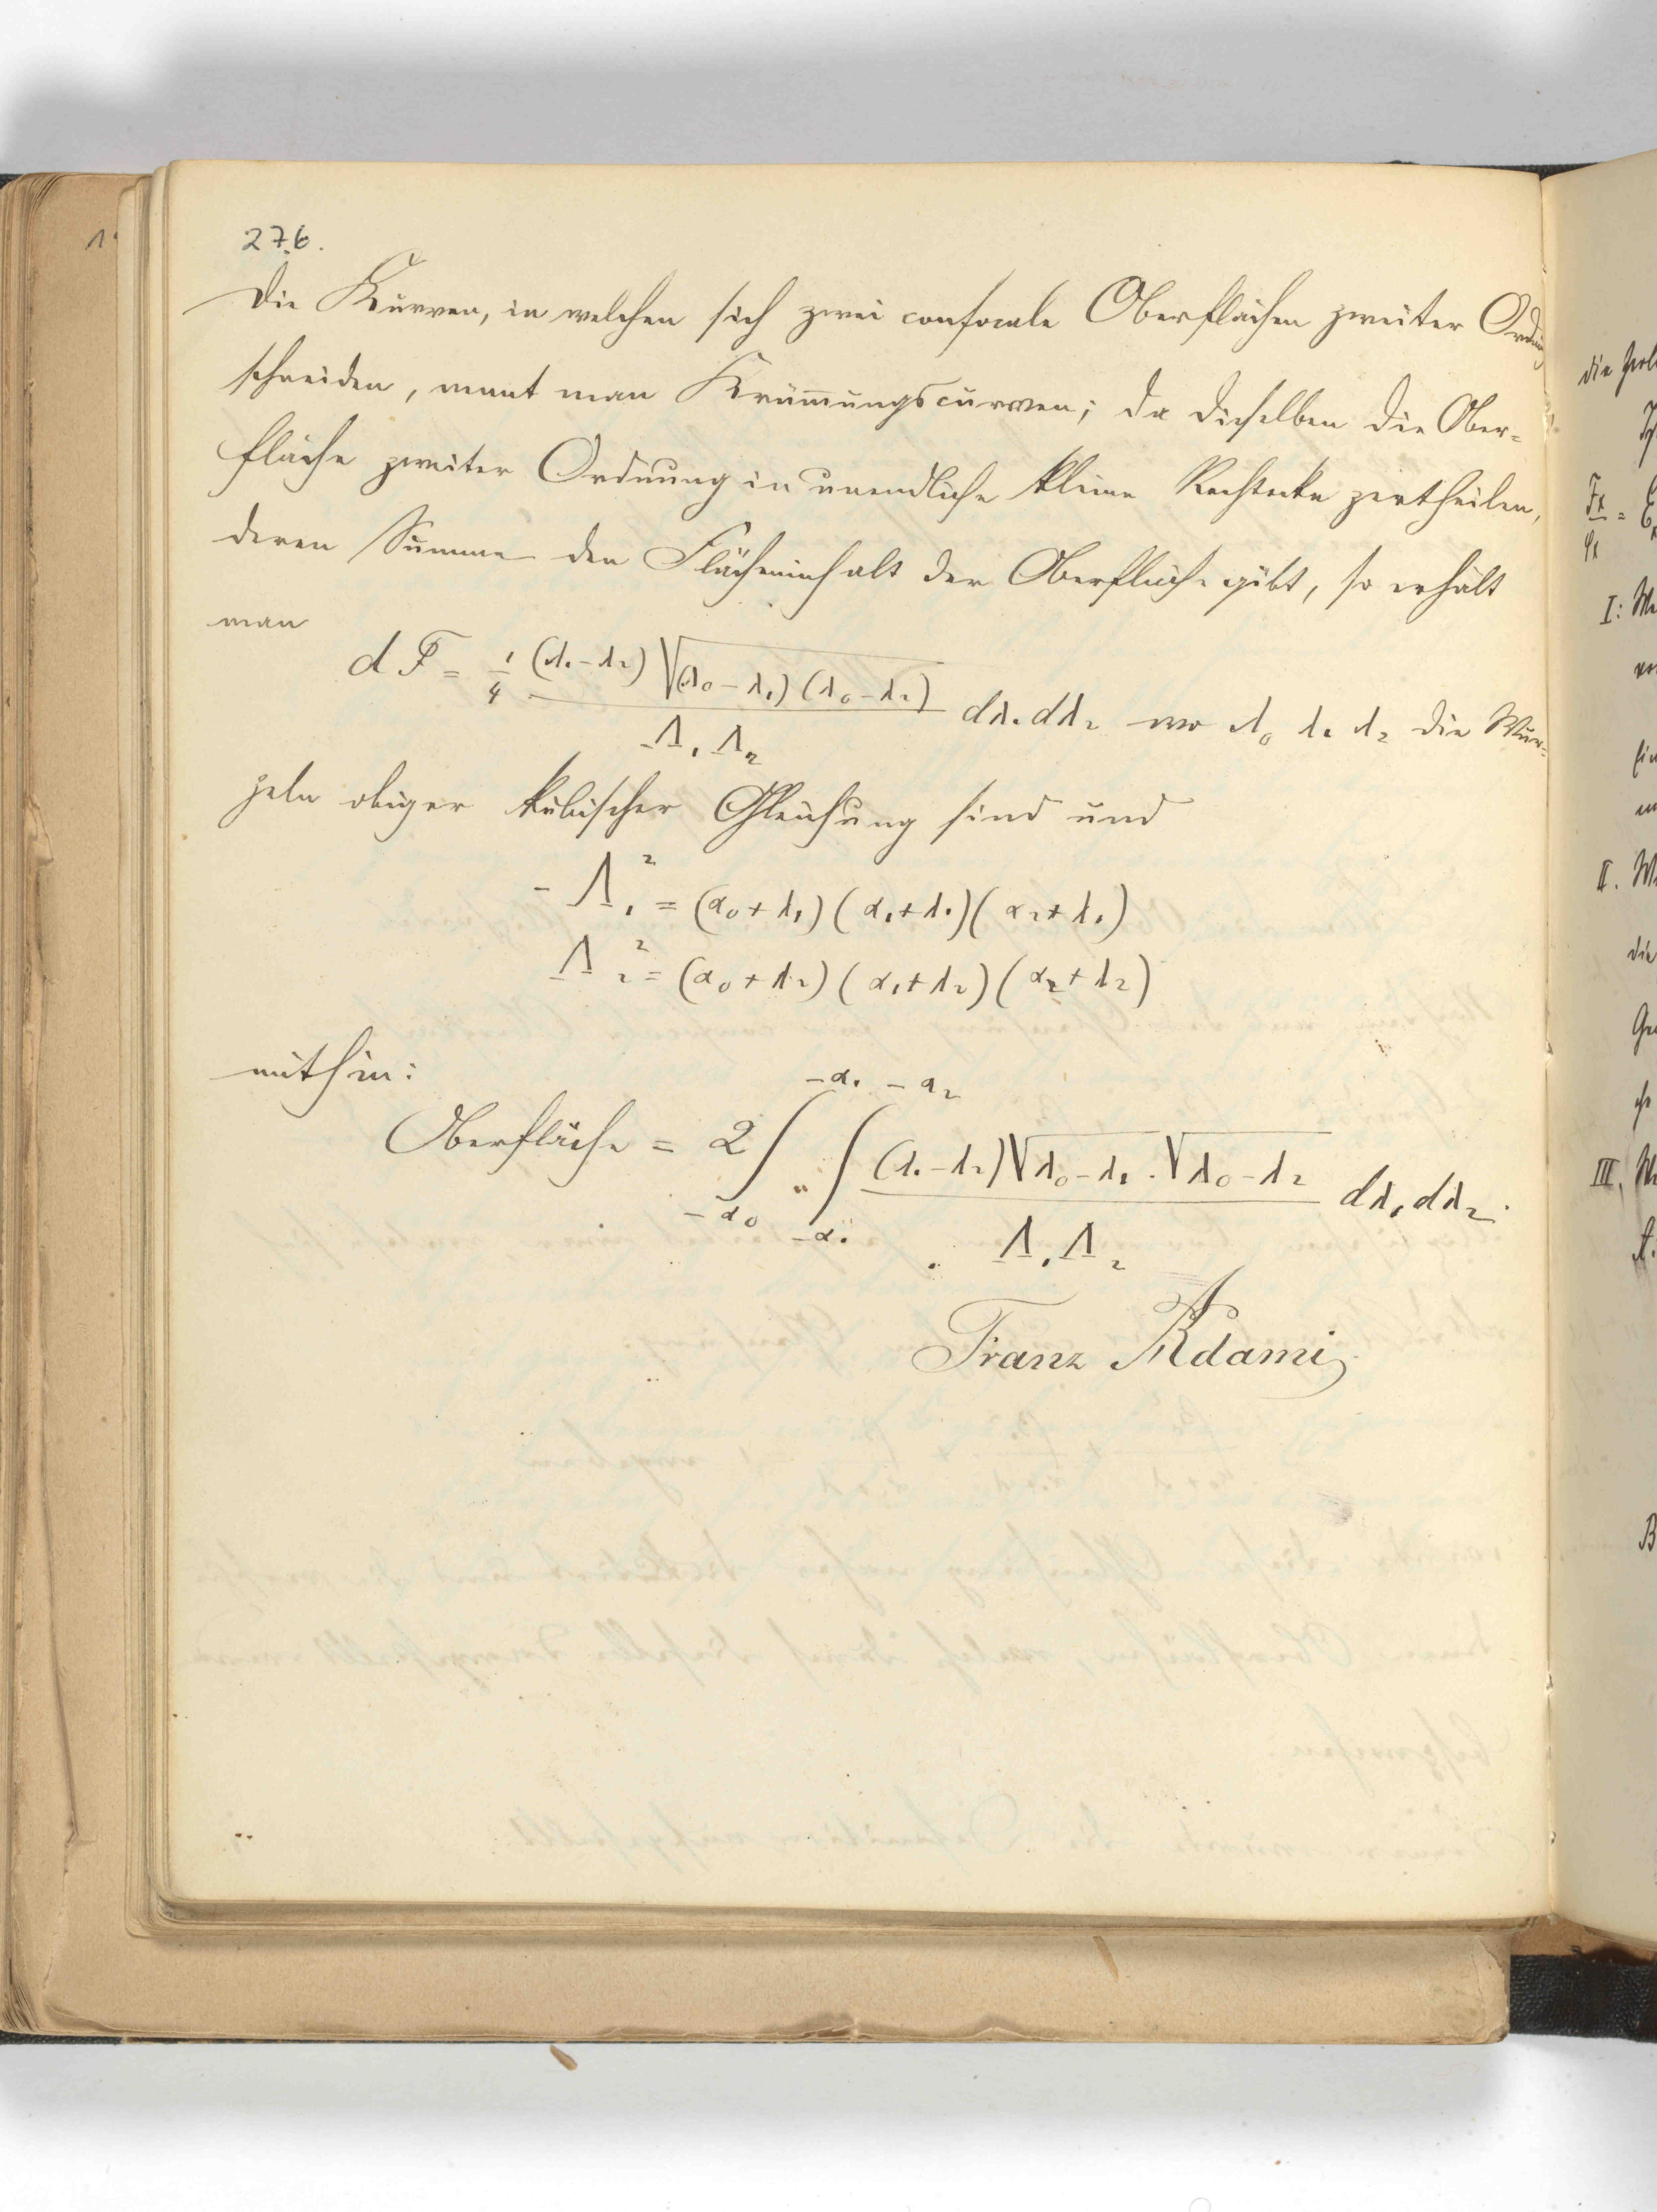 276.
Die Kurven, in welchen sich zwei confocale Oberflächen zweiter Ordnung
schneiden, nennt man Krümmungscurven; da dieselben die Ober-
fläche zweiter Ordnung in unendliche kleine Rechtecke zertheilen,
deren Summe den Flächeninhalt der Oberfläche gibt, so erhält
man
dF = 1/4 (λ₁-λ₂) √(λ₀-λ₁)(λ₀-λ₂) / Λ₁ Λ₂ dλ₁ dλ₂ wo λ₀ λ₁ λ₂ die Wur-
zeln obiger kubischer Gleichung sind und
- Λ₁² = (α₀+λ₁)(α₁+λ₁)(α₂+λ₁)
Λ₂² = (α₀+λ₂)(α₁+λ₂)(α₂+λ₂)
mithin:
Oberfläche = 2 ∫_{-α₀}^{-α₁} ∫_{-α₁}^{-α₂} (λ₁-λ₂)√λ₀-λ₁ . √λ₀-λ₂ / Λ₁ Λ₂ dλ₁ dλ₂.
Franz Adami